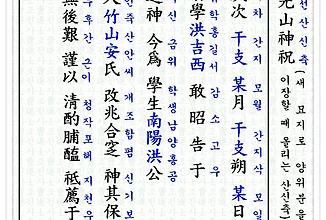 선산신축
先山神祝 (새 묘지로 양위분을
이장할 때 올리는 산신축)
차 간지 모월 간지삭 모일
次 干支 某月 干支朔 某日
학홍길서 감소고우
學洪吉西 敢昭告于
신 금위 학생남양홍공
之神 今爲 學生南陽洪公
인죽산안씨 개조합폄 신기보
人竹山安氏 改兆合窆 神其保
무후간 근이 청작포해 지천우
無後艱 謹以 淸酌脯醢 祗薦于